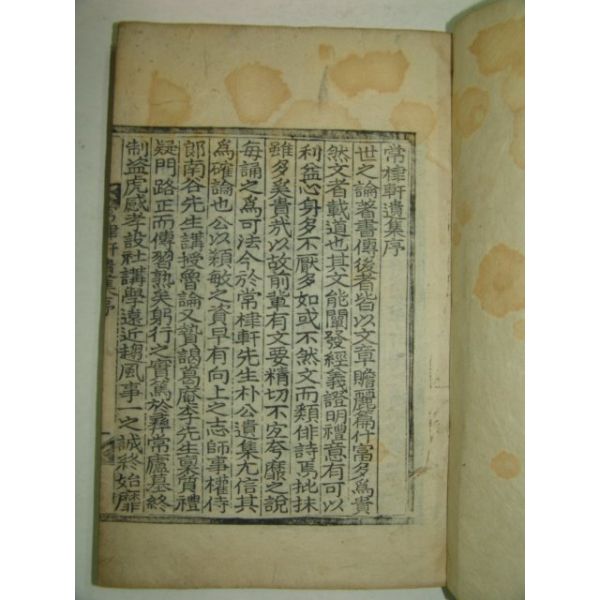 常棣軒遺集序
世之論著書傳後者皆以文章贍麗篇什富多為貴
然文者載道也其文能闡發經義證明禮意有可以
利益心身多不厭多如或不然文而類俳詩焉批抹
雖多奚貴哉以故前輩有文要精切不宏夸靡之說
每誦之為可法今於常棣軒先生朴公遺集尤信其
為確論也公以穎敏之資早有向上之志師事權侍
郎南谷先生講授魯論又贄謁葛庵李先生稟質禮
疑門路正而傳習熟矣躬行之實篤於彝常廬墓終
制益虎感孝設社講學遠近趨風事一之誠終始靡